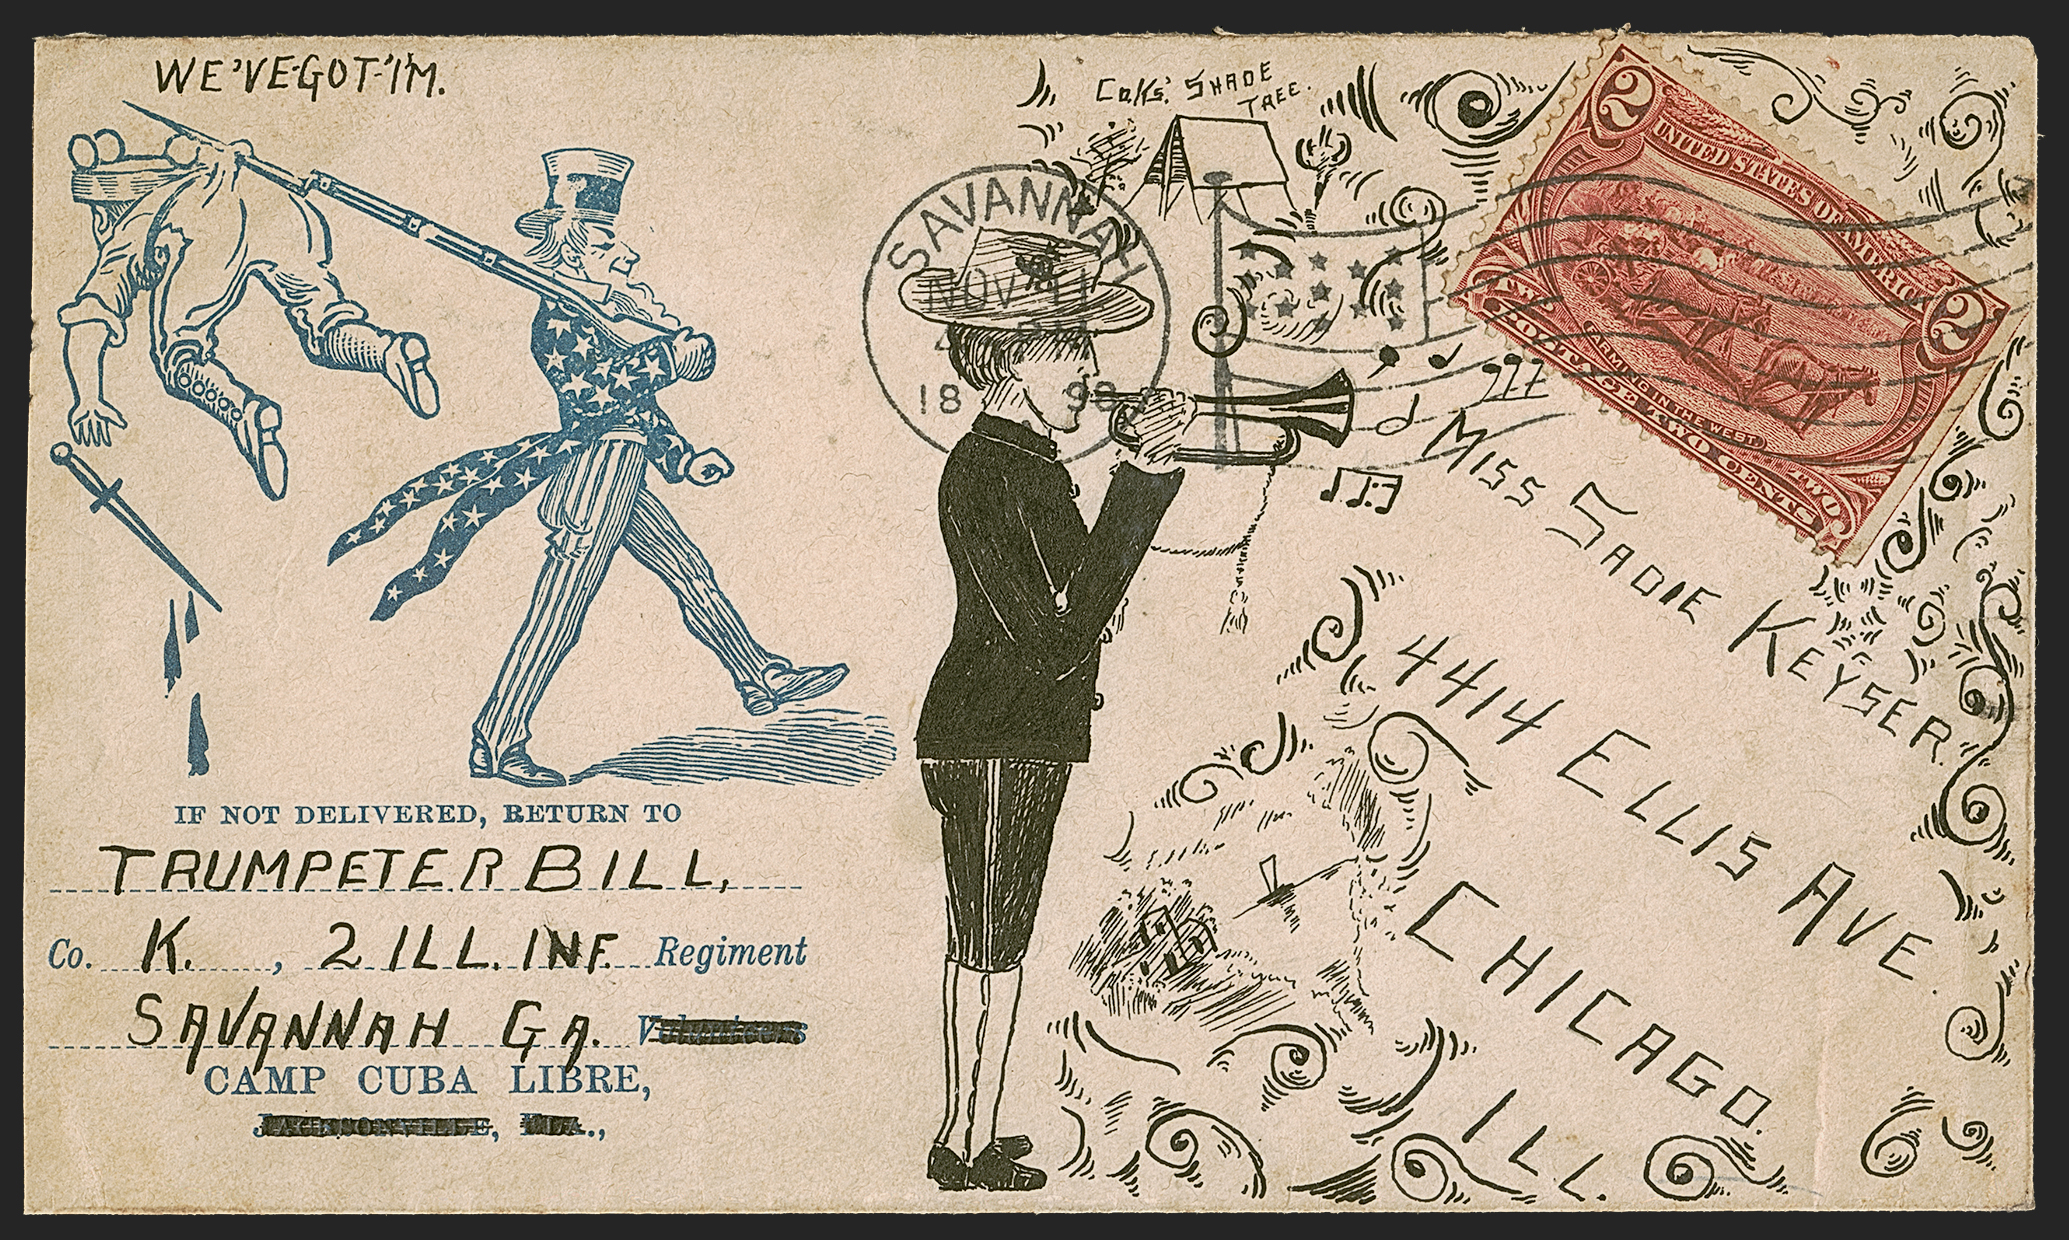 WE'VE-GOT-'I'M.
Co.K's'. SHADE
TREE.
SAVANNAH
NOV 11
1898
2
UNITED STATES OF AMERICA
2
FARMING IN THE WEST.
TWO POSTAGE TWO CENTS TWO
MISS SADIE KEYSER.
4414 ELLIS AVE
CHICAGO.
ILL.
IF NOT DELIVERED, RETURN TO
TRUMPETER BILL,
Co. K. , 2 ILL. INF. Regiment
SAVANNAH GA. Volunteers
CAMP CUBA LIBRE,
JACKSONVILLE, FLA.,